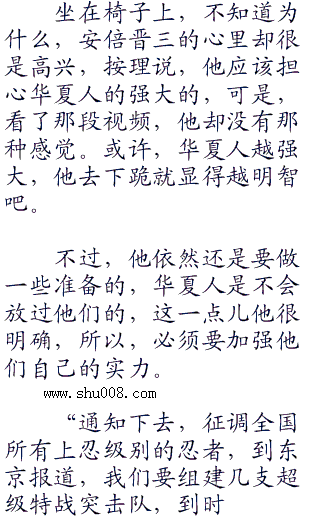 坐在椅子上，不知道为
什么，安倍晋三的心里却很
是高兴，按理说，他应该担
心华夏人的强大的，可是，
看了那段视频，他却没有那
种感觉。或许，华夏人越强
大，他去下跪就显得越明智
吧。
不过，他依然还是要做
一些准备的，华夏人是不会
放过他们的，这一点儿他很
明确，所以，必须要加强他
们自己的实力。
www.shu008.com
“通知下去，征调全国
所有上忍级别的忍者，到东
京报道，我们要组建几支超
级特战突击队，到时